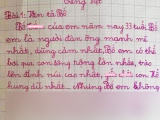 Tiếng Việt
Bài 1: Văn tả Bố
Bố của em năm nay 33 tuổi. Bố
em là người đàn ông mạnh mẽ
nhất, dũng cảm nhất. Bố em có thể
bơi qua con sông rộng lớn nhất, trèo
lên đỉnh núi cao nhất,
hung dữ nhất. Nhưng Bố em không